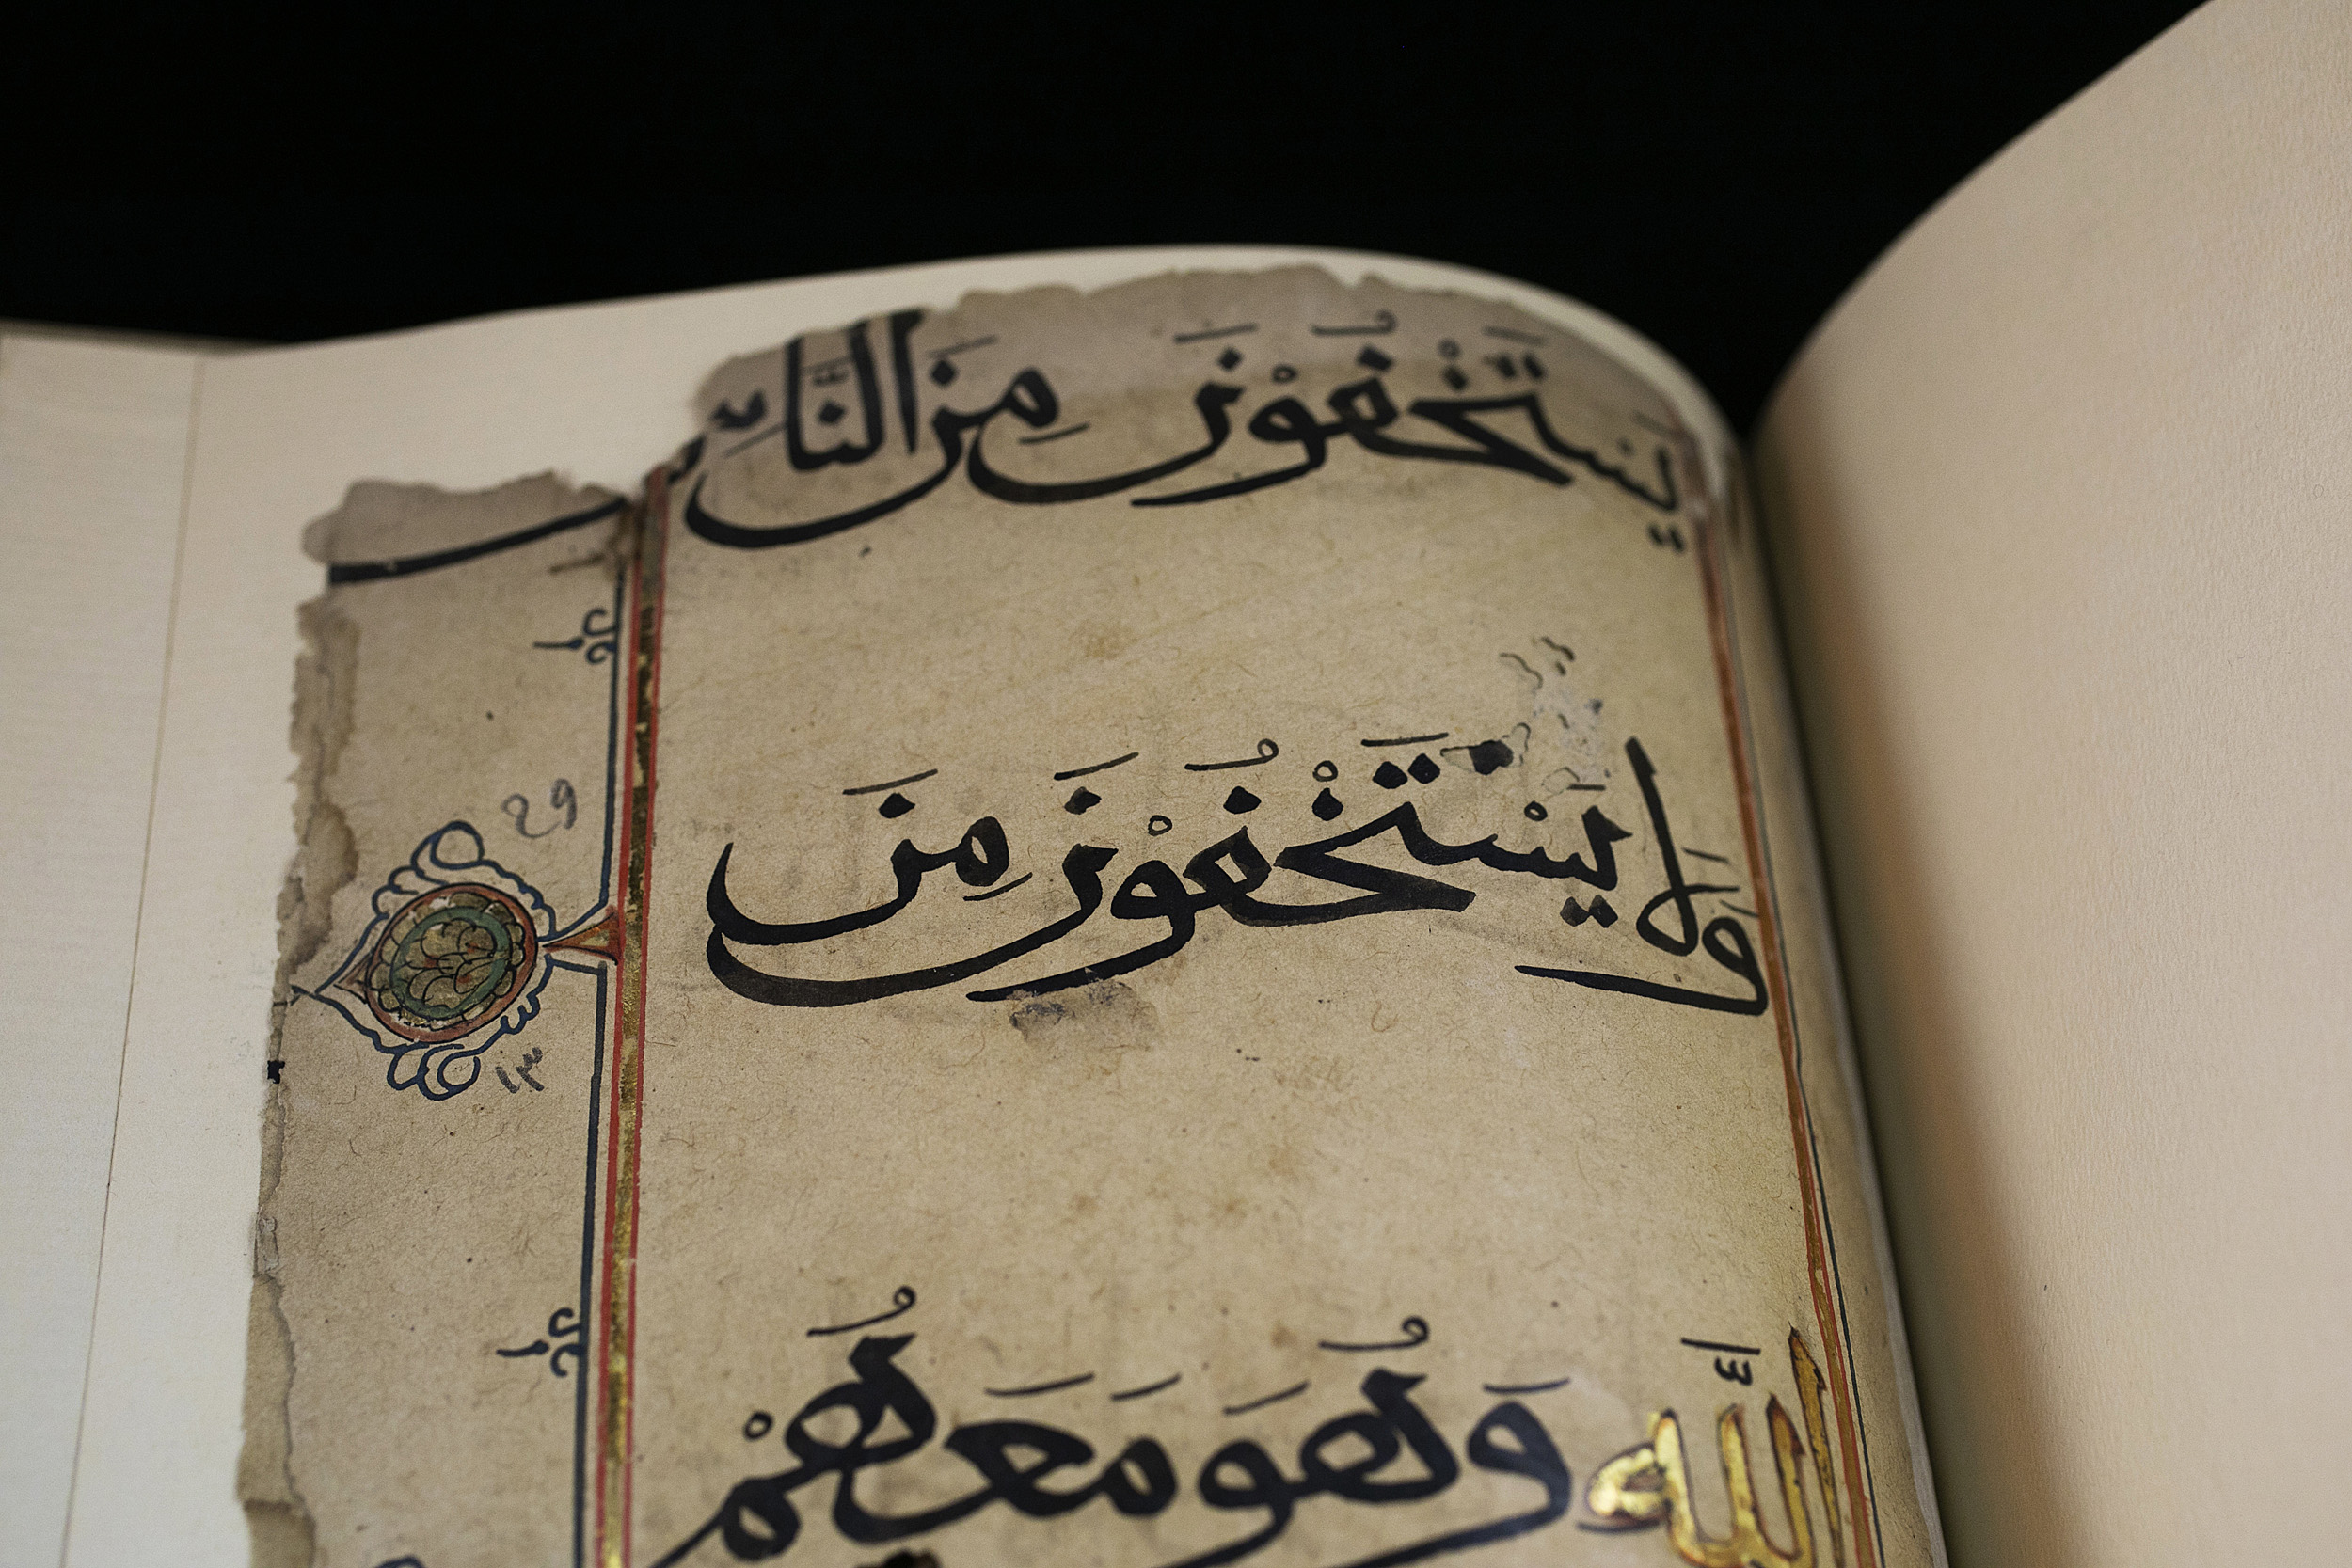 يَسْتَخْفُوْنَ مِنَ النَّاسِ
وَلَا يَسْتَخْفُوْنَ مِنَ
اللّٰه وَهُوَ مَعَهُمْ
١٣